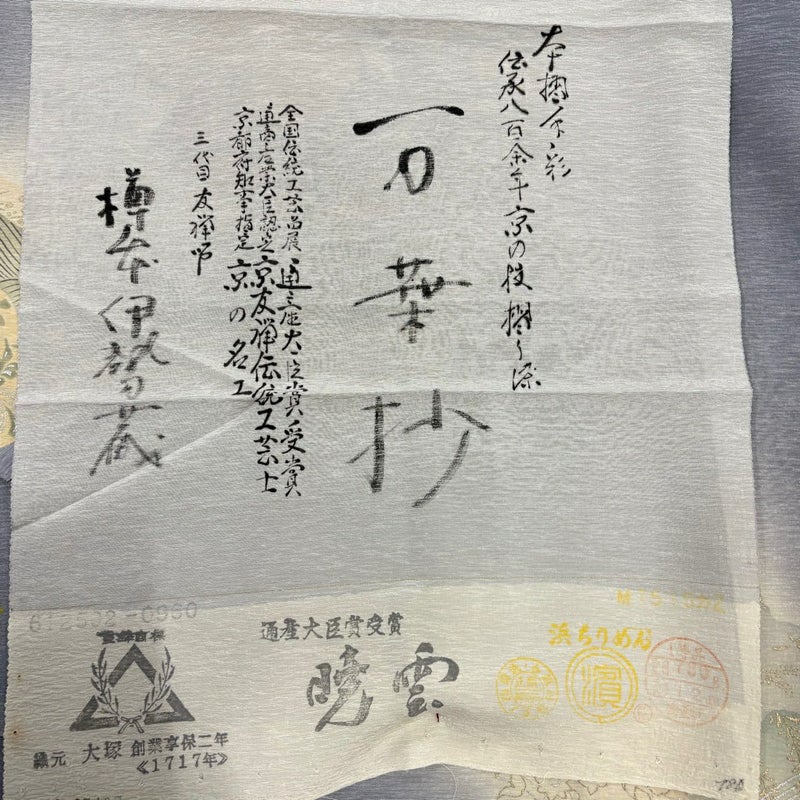 本摺本彩
伝承八百余年京の技摺り染
万葉抄
全国伝統工芸品展 通産大臣賞受賞
通商産業大臣認定 京友禅伝統工芸士
京都府知事指定 京の名工
三代目 友禅師
樽本伊勢蔵
通産大臣賞受賞
暁雲
浜ちりめん
濱
織元 大塚 創業享保二年
《1717年》